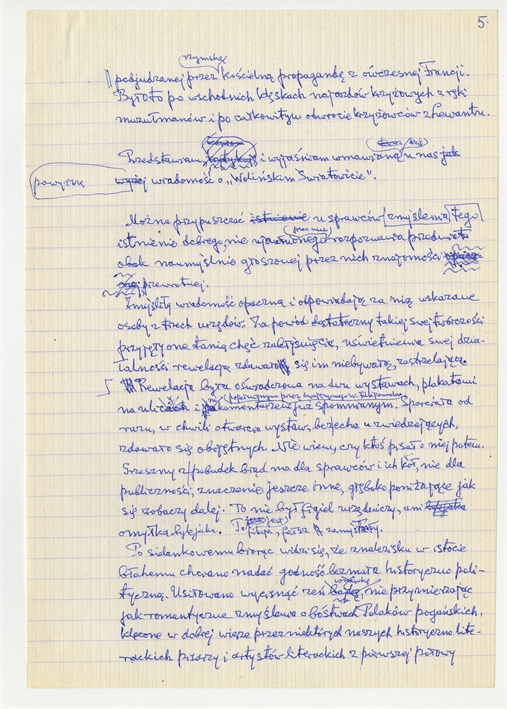 5.
rzymską
podjudzanej przez kościelną propagandę z ówczesnej Francji.
Było to po wschodnich klęskach najazdów krzyżowych z ręki
muzułmanów i po całkowitym odwrocie krzyżowców z Lewantu.
Przedstawiam i wyjaśniam wmawianą u nas jak
powyższą
wyżej wiadomość o „Wolińskim Światowicie”.
Można przypuszczać istnienie u sprawców zmyślenia tego
przez nich
istnienie dobrego, nie rozpoznania przedmiotu
obok naumyślnie głoszonej przez nich znajomości
przewrotnej.
Zmyślili wiadomość opaczną i odpowiadają za nią wskazane
osoby z trech urzędów. Za powód dostateczny takiej swej twórczości
przyjęły one tanią chęć zabłyśnięcia, uświetnienia swej dzia-
łalności rewelacją zdawało się im niebywałą, zastrzelającą
Rewelacja była oświadczona na dwu wystawach, plakatami
na ulicach i komentarzem już wspomnianym. Sparciała od
razu, w chwili otwarcia wystaw, bezecna u zwiedzających,
zdawało się obojętnych. Nie wiem, czy ktoś pisał o niej potem.
Śmieszny z pobudek błąd ma dla sprawców i ich kół, nie dla
publiczności, znaczenie jeszcze inne, głęboko poniżające jak
się zobaczy dalej. To nie był figiel urzędniczy, ani
omyłka
Po sielankowemu biorąc widzi się, że znalezisku w istocie
błahemu chciano nadać godność bezmała historyczno poli-
tyczną. Usiłowano wycisnąć zeń nie przymierzając
jak romantyczne zmyślenia o bóstwach Polaków pogańskich,
klecone w dobrej wierze przez niektórych naszych historyczno lite-
rackich pisarzy i artystów literackich z pierwszej połowy